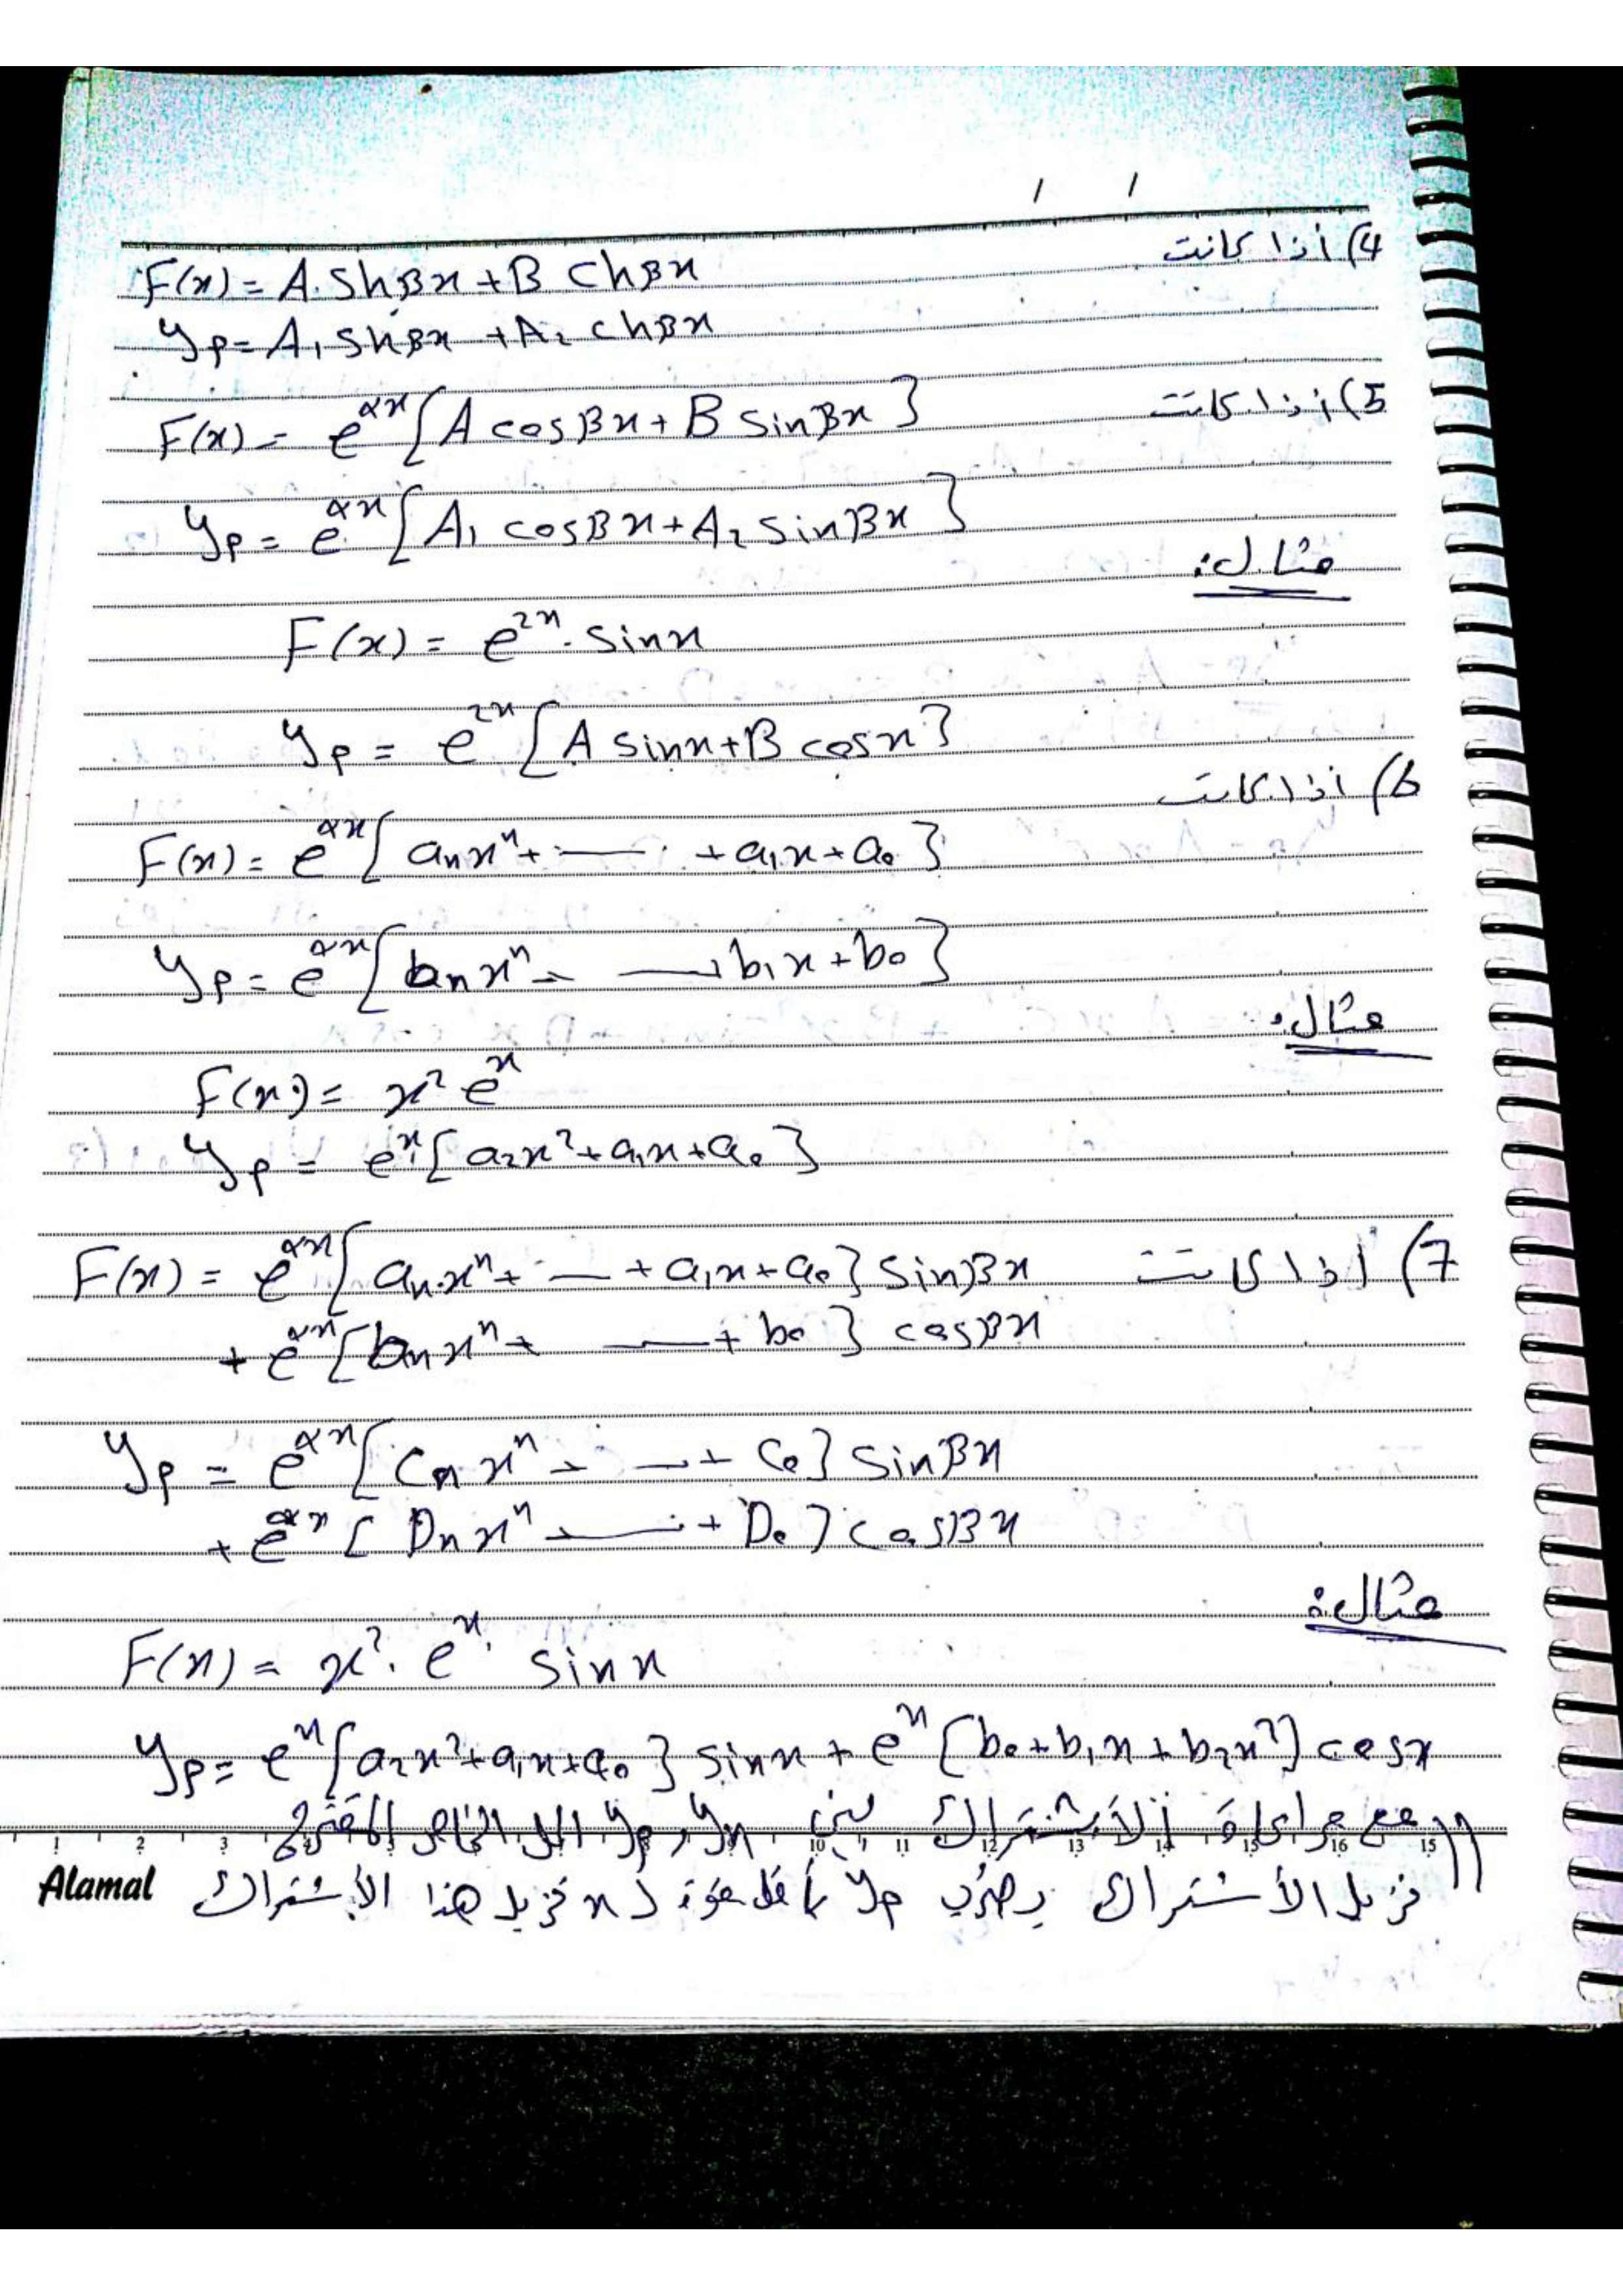 4) أذا كانت
F(x) = A. ShBx + B ChBx
yp = A1 ShBx + A2 chBx
5) إذا كانت
F(x) = e^αx [A cosBx + B SinBx]
yp = e^αx [A1 cosBx + A2 sinBx]
مثال:
F(x) = e^2x . Sinx
yp = e^2x [A sinx + B cosx]
6) أذا كانت
F(x) = e^αx [anx^n + — + a1x + a0]
yp = e^αx [bnx^n + — + b1x + b0]
مثال:
F(x) = x² e^x
yp = e^x [a2x² + a1x + a0]
7) إذا كانت F(x) = e^αx [an.x^n + — + a1x + a0] sinBx
+ e^αx [bnx^n + — + b0] cosBx
yp = e^αx [Cnx^n + — + C0] sinBx
+ e^αx [Dnx^n + — + D0] cosBx
مثال:
F(x) = x². e^x. sinx
yp = e^x [a2x² + a1x + a0] sinx + e^x [b0 + b1x + b2x²] cosx
مع مراعاة الأشتراك بين yh و yp الحل الخاص المقترح
نزيل الأشتراك بضرب yp بأقل قوة لـ x تزيل هذا الأشتراك
1 2 3 10 11 12 13 14 15 16 15
Alamal